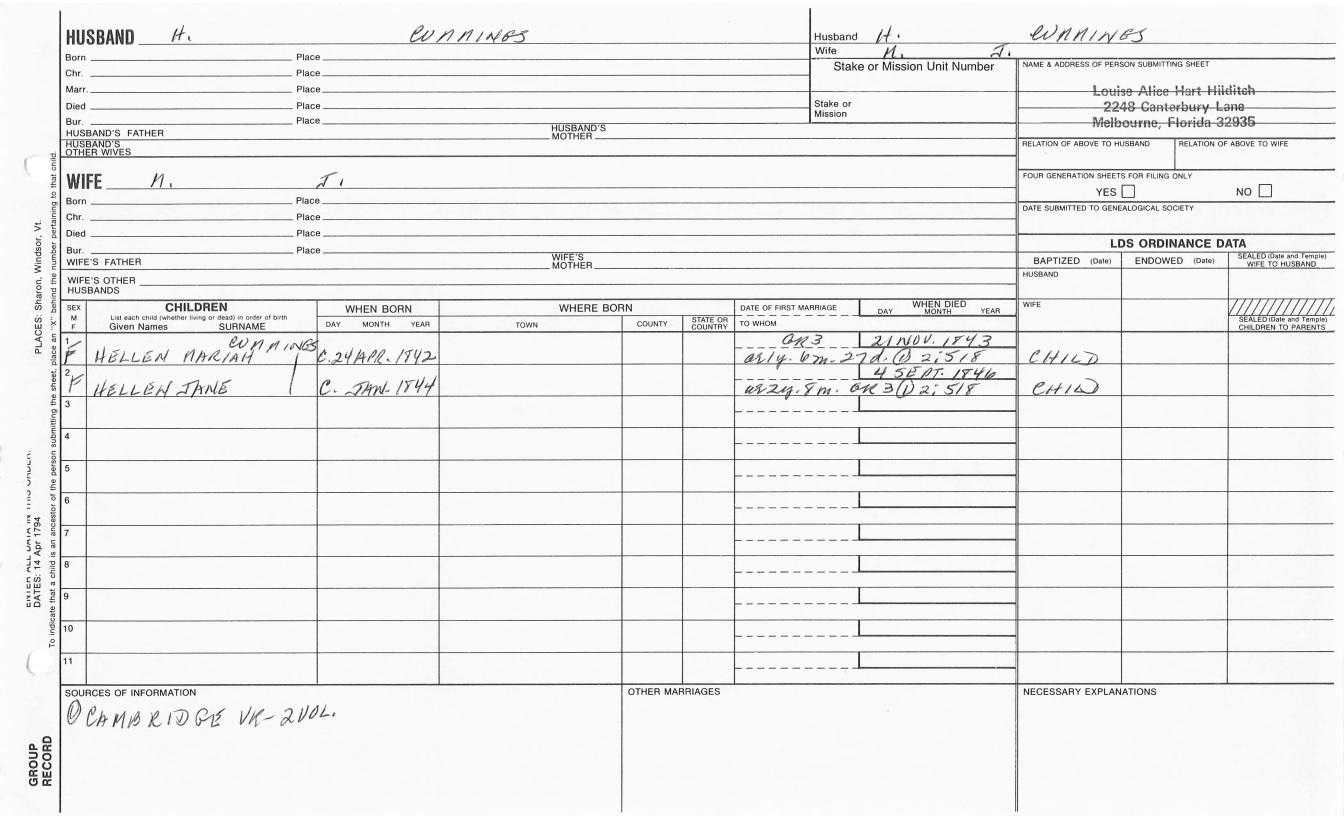 HUSBAND H. CUMMINGS
Born Place
Chr. Place
Marr. Place
Died Place
Bur. Place
HUSBAND'S FATHER HUSBAND'S MOTHER
HUSBAND'S OTHER WIVES
Husband H. CUMMINGS
Wife M. J.
Stake or Mission Unit Number
Stake or Mission
NAME & ADDRESS OF PERSON SUBMITTING SHEET
Louise Alice Hart Hilditch
2248 Canterbury Lane
Melbourne, Florida 32935
RELATION OF ABOVE TO HUSBAND RELATION OF ABOVE TO WIFE
FOUR GENERATION SHEETS FOR FILING ONLY
YES NO
DATE SUBMITTED TO GENEALOGICAL SOCIETY
WIFE M. J.
Born Place
Chr. Place
Died Place
Bur. Place
WIFE'S FATHER WIFE'S MOTHER
WIFE'S OTHER HUSBANDS
LDS ORDINANCE DATA
BAPTIZED (Date) ENDOWED (Date) SEALED (Date and Temple) WIFE TO HUSBAND
HUSBAND
WIFE
SEALED (Date and Temple) CHILDREN TO PARENTS
SEX M F
CHILDREN
List each child (whether living or dead) in order of birth
Given Names SURNAME
WHEN BORN
DAY MONTH YEAR
WHERE BORN
TOWN COUNTY STATE OR COUNTRY
DATE OF FIRST MARRIAGE
TO WHOM
WHEN DIED
DAY MONTH YEAR
1 CUMMINGS GR3 21 NOV. 1843
F HELLEN MARIAH C.24 APR. 1842 a. 1y. 6m. 27d. (1) 2:518 CHILD
2 4 SEPT. 1846
F HELLEN JANE C. JAN. 1844 a. 2y. 8m. GR 3 (1) 2:518 CHILD
3
4
5
6
7
8
9
10
11
SOURCES OF INFORMATION OTHER MARRIAGES NECESSARY EXPLANATIONS
(1) CAMBRIDGE VR-2VOL.
PLACES: Sharon, Windsor, Vt.
ENTER ALL DATA IN THIS ORDER:
DATES: 14 Apr 1794
To indicate that a child is an ancestor of the person submitting the sheet, place an "X" behind the number pertaining to that child.
GROUP RECORD